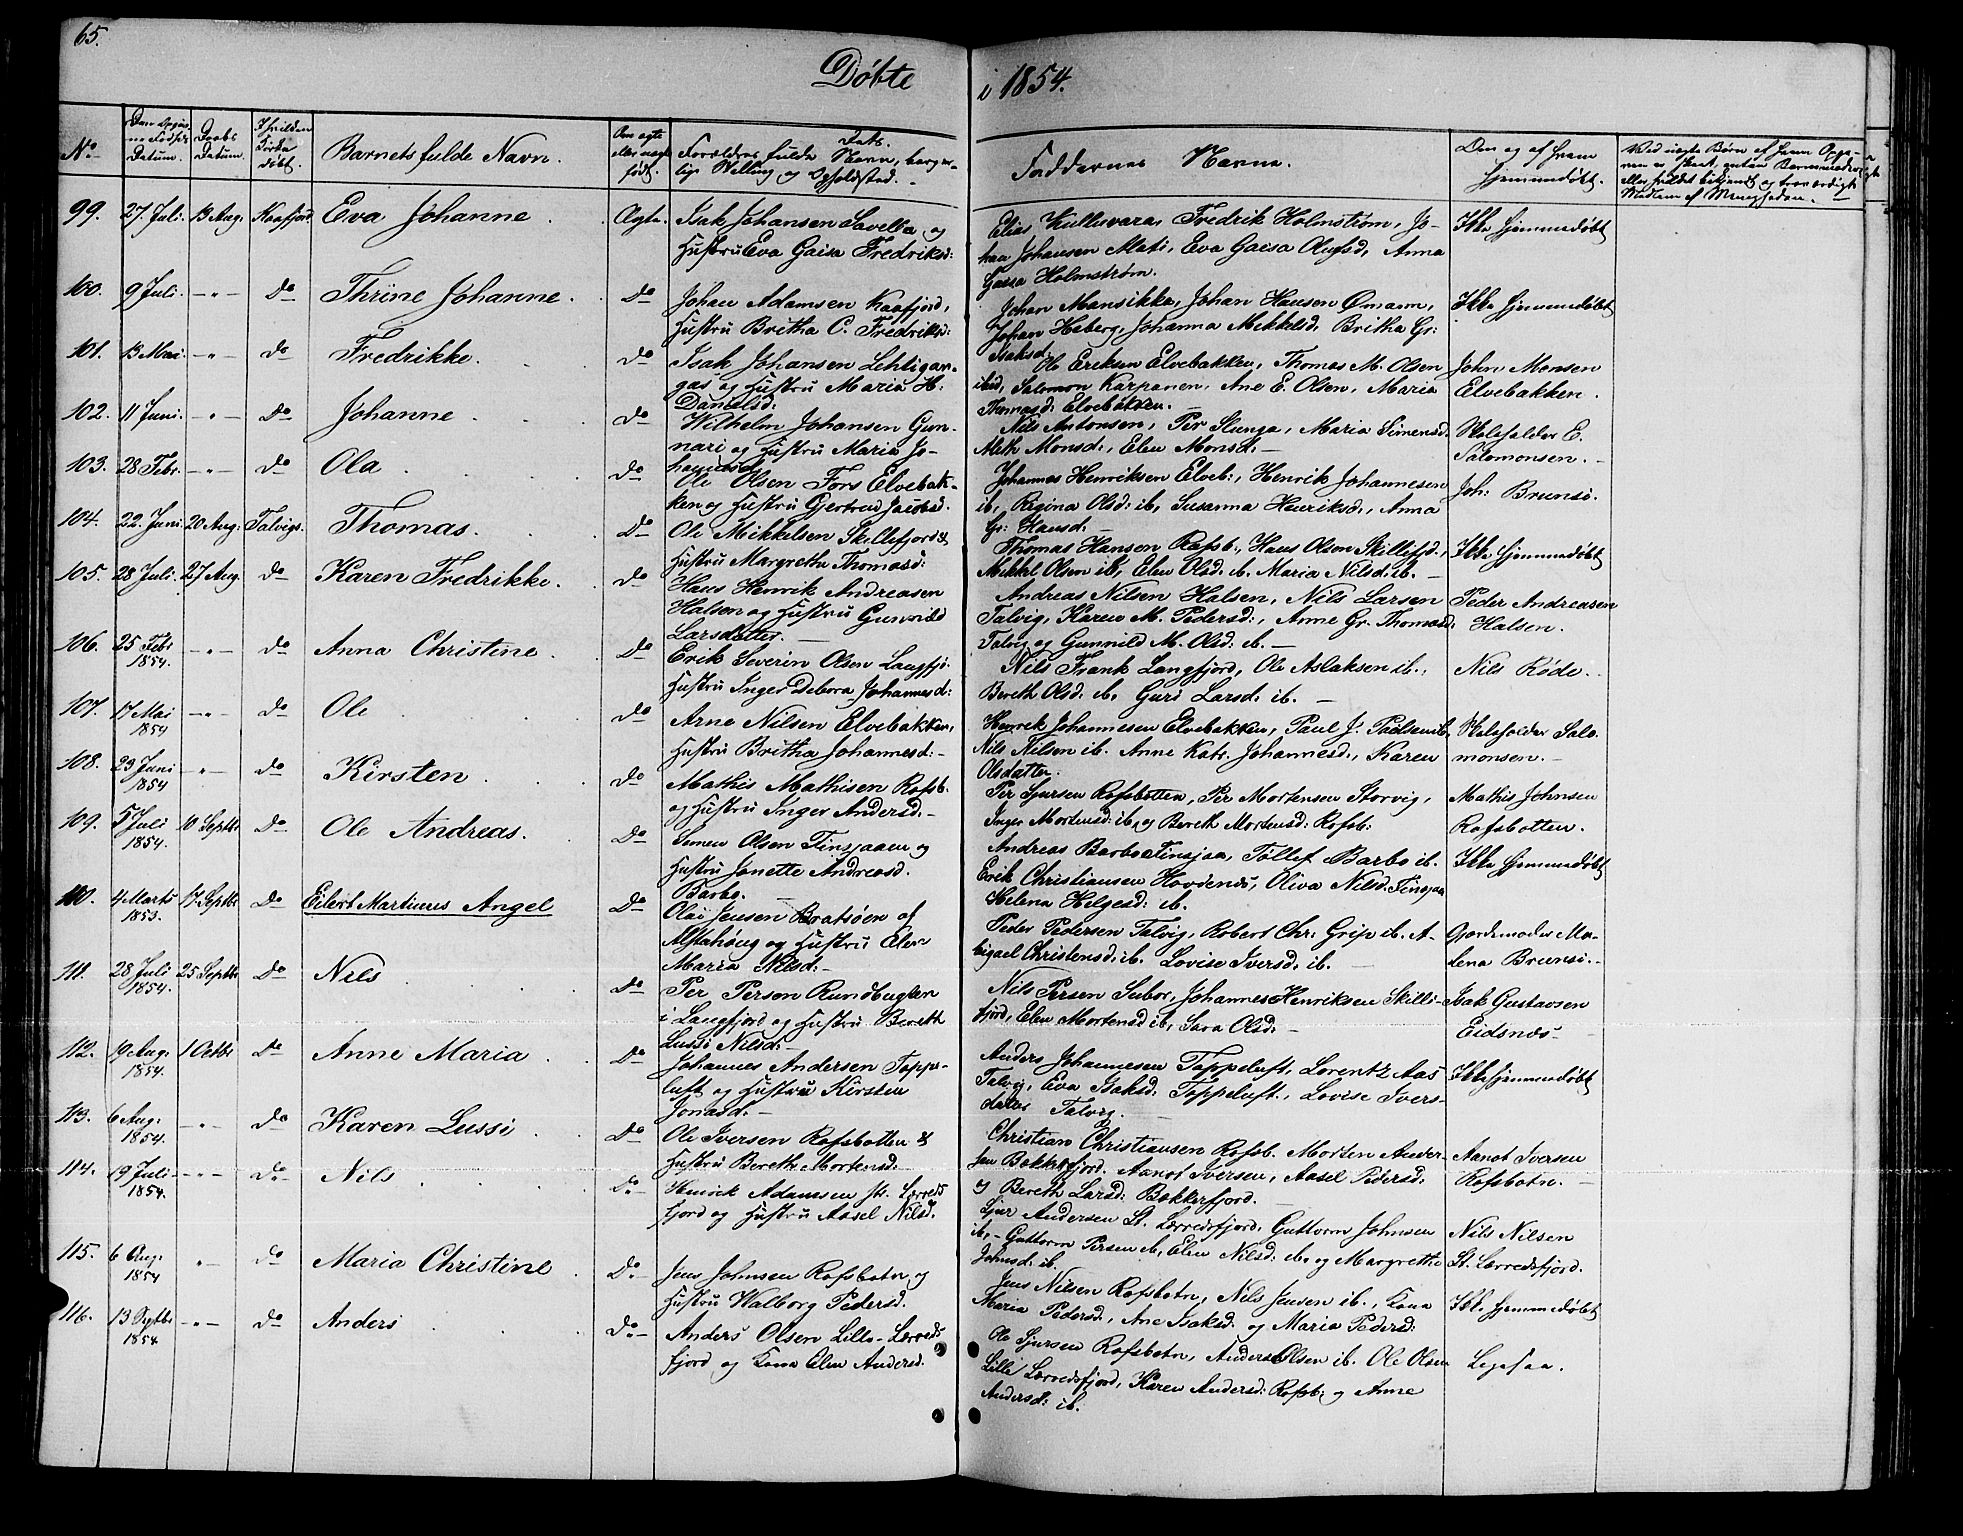 65.
Døbte i 1854.
No
Barnets fulde Navn.
Faddernes Navne.
99. 27. Juli. 13 Aug. Kaafjord Eva Johanne Ægte. Isak Johansen Savella og
Hustru Eva Gaisa Fredriksd:
Elias Kulluvara, Fredrik Holmstrøm, Jo-
han Johansen Mati, Eva Gaisa Olufsd, Anna
Gaisa Holmstrøm.
Ikke hjemmedøbt
100. 9 Juli. -"- Do Thrine Johanne. Do Johan Adamsen Kaafjord,
Hustru Britha C. Fredriksd:
Johan Mansikka, Johan Hansen Ømann,
Johan Haberg, Johanna Mikkelsd, Britha Gr:
Isaksd.
Ikke hjemmedøbt
101. 13 Mai -"- do Fredrikke. do Isak Johansen Lehtigan-
gas og Hustru Maria H.
Danielsd:
Ole Eriksen Elvebakken, Thomas M. Olsen
ibid, Salomon Karpanen, Ane E. Olsen, Maria
Thomasd: Elvebakken.
John Monsen
Elvebakken.
102. 11 Juni. -"- Do Johanne do Wilhelm Johansen Gun-
nari og Hustru Maria Jo-
hannesd.
Nils Antonsen, Per Slunga, Maria Simensd.
Meth Monsd:, Elen Monsd:
Skoleholder E.
Salomonsen.
103. 28 Febr. -"- do Ola do Ole Olsen Fors Elvebak-
ken og Hustru Gjertrud Jacobsd.
Johannes Henriksen Elveb:, Henrik Johannesen
ib, Regina Olsd: ib, Susanna Henriksd., Anna
Gr: Hansd.
Joh: Brunsi.
104. 22. Juni 20 Aug: Talvig. Thomas. Do Ole Mikkelsen Skillefjord &
Hustru Margrethe Thomasd:
Thomas Hansen Rafsb:, Hans Olsen Skillefjd.,
Mikkel Olsen ib, Elen Olsd. ib. Maria Nilsd: ib.
Ikke hjemmedøbt
105. 28 Juli. 27 Aug. do Karen Fredrikke. do Hans Henrik Andreasen
Halsen og Hustru Gunnild
Larsdatter.
Andreas Nilsen Halsen, Nils Larsen
Talvig, Karen M. Pedersd:, Anne Gr. Thomasd:
Talvig og Gunnild M. Olsd: ib.
Peder Andreasen
Halsen.
106. 25 Febr 1854. -"- do Anna Christine Do Erik Severin Olsen Langfj:
Hustru Inger Debora Johannesd:
Nils Frank Langfjord, Ole Aslaksen ib.,
Bereth Olsd: ib, Guri Larsd: ib.
Nils Røde.
107. 17 Mai 1854 -"- do Ole do Arne Nilsen Elvebakken,
Hustru Britha Johannesd:
Henrik Johannesen Elvebakken, Paul J. Paulsen ib,
Nils Nilsen ib. Anne Katr. Johannesd., Karen
Olsdatter.
Skoleholder Salo-
monsen.
108. 23 Juni 1854 -"- do Kirsten do Mathis Mathisen Rafsb.
og Hustru Inger Andersd.
Per Sjursen Rafsbotten, Per Mortensen Storvig,
Inger Mortensd: ib, og Bereth Mortensd: Rafsb:
Mathis Johnsen
Rafsbotten.
109. 5 Juli 1854. 10 Septbr Do Ole Andreas. Do Simen Olsen Finsjaaen og
Hustru Jonette Andreasd.
Barbo.
Andreas Barbo Finsjaa, Tollef Barbo ib.
Erik Christiansen Hovdenes, Oliva Nilsd. Finsjaa
Helena Helgesd: ib.
Ikke hjemmedøbt
110. 4 Marts 1853. 17 Septbr Do Eilert Martinus Angel Do Olai Jensen Bratsøen af
Alstahoug og Hustru Elen
Maria Nilsd:
Peder Pedersen Talvig, Robert Chr: Grip ib. A-
bigael Christensd: ib. Lovise Iversd: ib.
Gjordemoder Ma-
lena Brunsi.
111. 28 Juli 1854. 25 Septbr Do Nils Do Per Persen Rundbugten
i Langfjord og Hustru Bereth
Lussi Nilsd:
Nils Persen Subor, Johannes Henriksen Skille-
fjord, Elen Mortensd ib, Sara Olsd:
Isak Gustavsen
Eidsnæs
112. 19 Aug. 1854. 1 Octbr Do Anne Maria Do Johannes Andersen Toppe-
luft og Hustru Kirsten
Jonasd.
Anders Johannesen Toppeluft, Lorentz Aas
Talvig, Eva Isaksd: Toppeluft, Lovise Ivers-
datter Talvig.
Ikke hjemmedøbt
113. 6 Aug. 1854. -"- do Karen Lussi Do Ole Iversen Rafsbotten &
Hustru Bereth Mortensd.
Christian Christiansen Rafsb. Morten Ander-
sen Bokkefjord. Aanot Iversen, Aasel Pedersd.
og Bereth Larsd: Bokkerfjord.
Aanot Iversen
Rafsbotn.
114. 19 Juli 1854. -"- do. Nils Do. Henrik Adamsen St. Lærreds
fjord og Hustru Aasel Nilsd.
Sjur Andersen St. Lærredsfjord, Guttorm Johnsen
ib, Guttorm Persen ib, Elen Nilsd: ib. og Margrethe
Johnsd: ib.
Nils Nilsen
St. Lærredsfjord.
115. 6 Aug. 1854 "- do Maria Christine Do. Jens Johnsen Rafsbotn og
Hustru Walborg Pedersd.
Jens Nilsen Rafsbotn, Nils Jensen ib., Kona
Maria Pedersd., Ane Isaksd. og Maria Pedersd:
Ikke hjemmedøbt
116. 13 Septbr 1854. -"- do Anders Do. Anders Olsen Lille-Lærreds
fjord og Kone Elen Andersd.
Ole Sjursen Rafsbotn, Anders Olsen ib. Ole Olsen
Lille Lærredsfjord, Karen Andersd: Rafsb: og Anne
Andersd: ib.
Ligesaa.